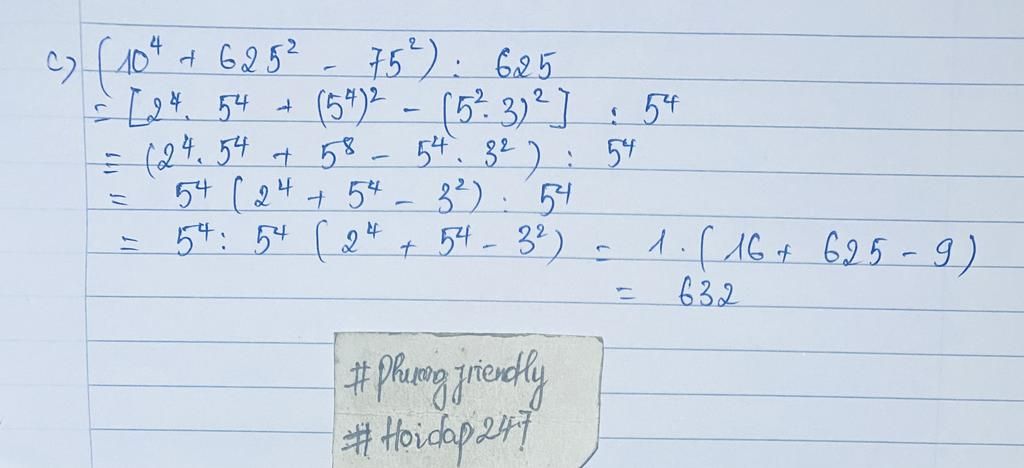 c) (10⁴ + 625² - 75²) : 625
= [2⁴. 5⁴ + (5⁴)² - (5². 3)²] : 5⁴
= (2⁴. 5⁴ + 5⁸ - 5⁴. 3²) : 5⁴
= 5⁴ (2⁴ + 5⁴ - 3²) : 5⁴
= 5⁴ : 5⁴ (2⁴ + 5⁴ - 3²) = 1. (16 + 625 - 9)
= 632
#Phuong friendly
#Hoidap247